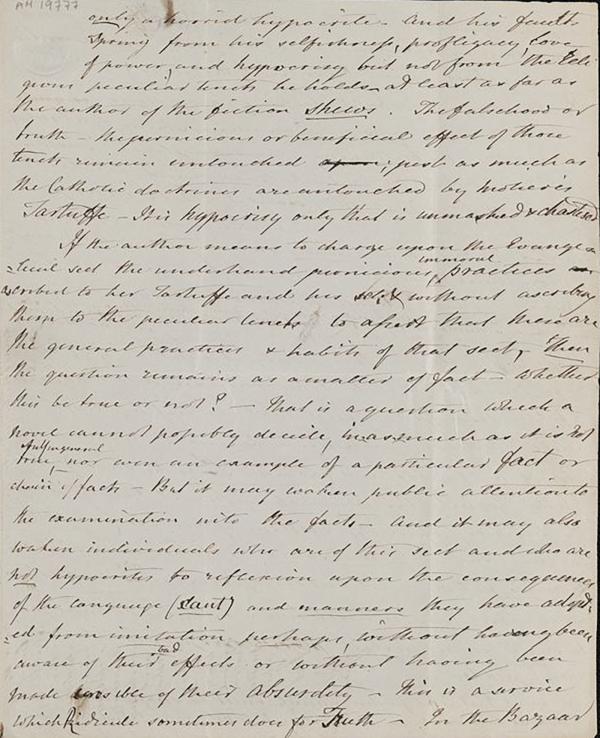 AM 19777
only a horrid hypocrite - and his faults
spring from his selfishness, profligacy, love
of power, and hypocrisy but not from the Reli
gious peculiar tenets he holds - at least as far as
the author of the fiction shews. The falsehood or
truth - the pernicious or beneficial effect of those
tenets remain untouched ; just as much as
the Catholic doctrines are untouched by Moliere's
Tartuffe - It is hypocrisy only that is unmasked & chastised
If the author means to charge upon the Evange
-lical sect the underhand pernicious, immoral practices as
scribed to her Tartuffe and his without ascribing
them to the peculiar tenets to assert that these are
the general practices & habits of that sect, Then
the question remains as a matter of fact - whether
this be true or not? - That is a question which a
novel cannot possibly decide, inasmuch as it is not
true, nor even an example of a particular fact or
chain of facts - But it may waken public attention to
the examination into the facts - And it may also
waken individuals who are of this sect and who are
not hypocrites to reflexion upon the consequences
of the language (cant) and manners they have adopt
-ed from imitation perhaps, without having been
aware of their bad effects or without having been
made sensible of their absurdity - This is a service
which Ridicule sometimes does for Truth - In the Bazaar